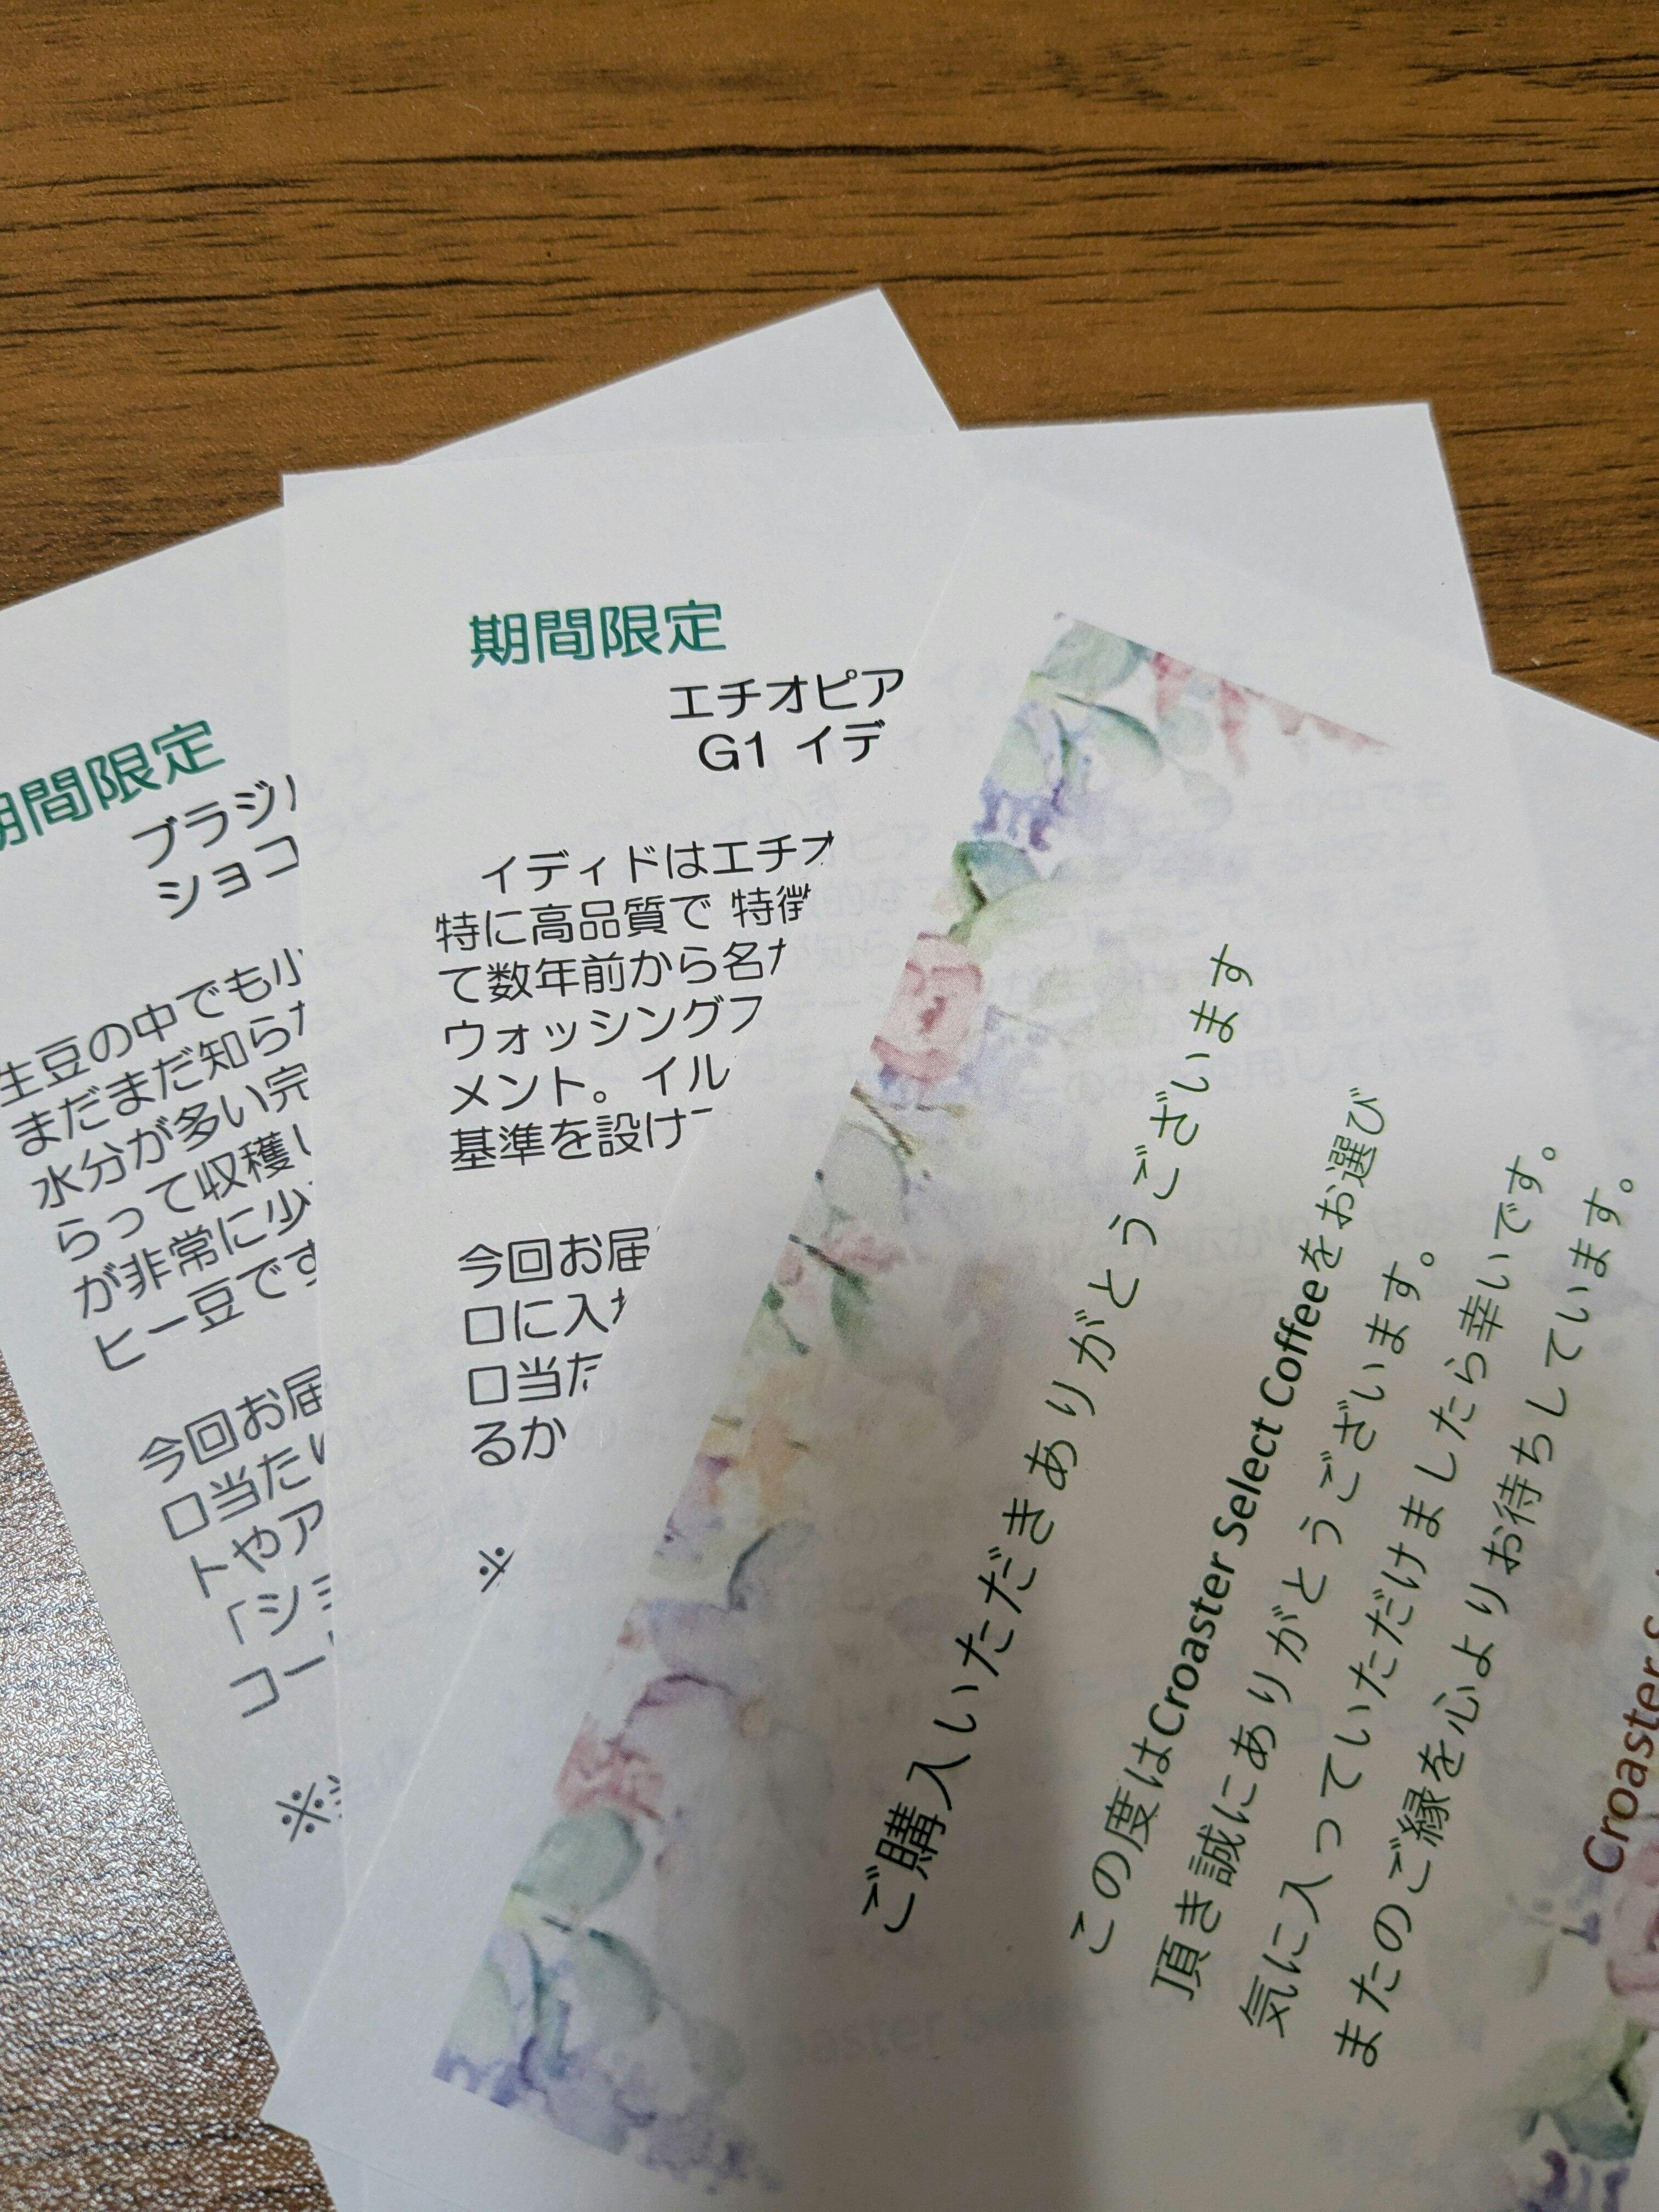 期間限定
ブラジ
ショコ
生豆の中でも小
まだまだ知ら
水分が多い完
らって収穫し
が非常に少
ヒー豆です
今回お届
口当たい
トやア
「ショ
コー
※
期間限定
エチオピア
G1 イデ
イディドはエチオ
特に高品質で 特徴
て数年前から名
ウォッシング
メント。イル
基準を設け
今回お届
口に入
口当た
るか
※
ご購入いただきありがとうございます
この度はCroaster Select Coffeeをお選び
頂き誠にありがとうございます。
気に入っていただけましたら幸いです。
またのご縁を心よりお待ちしています。
Croaster S